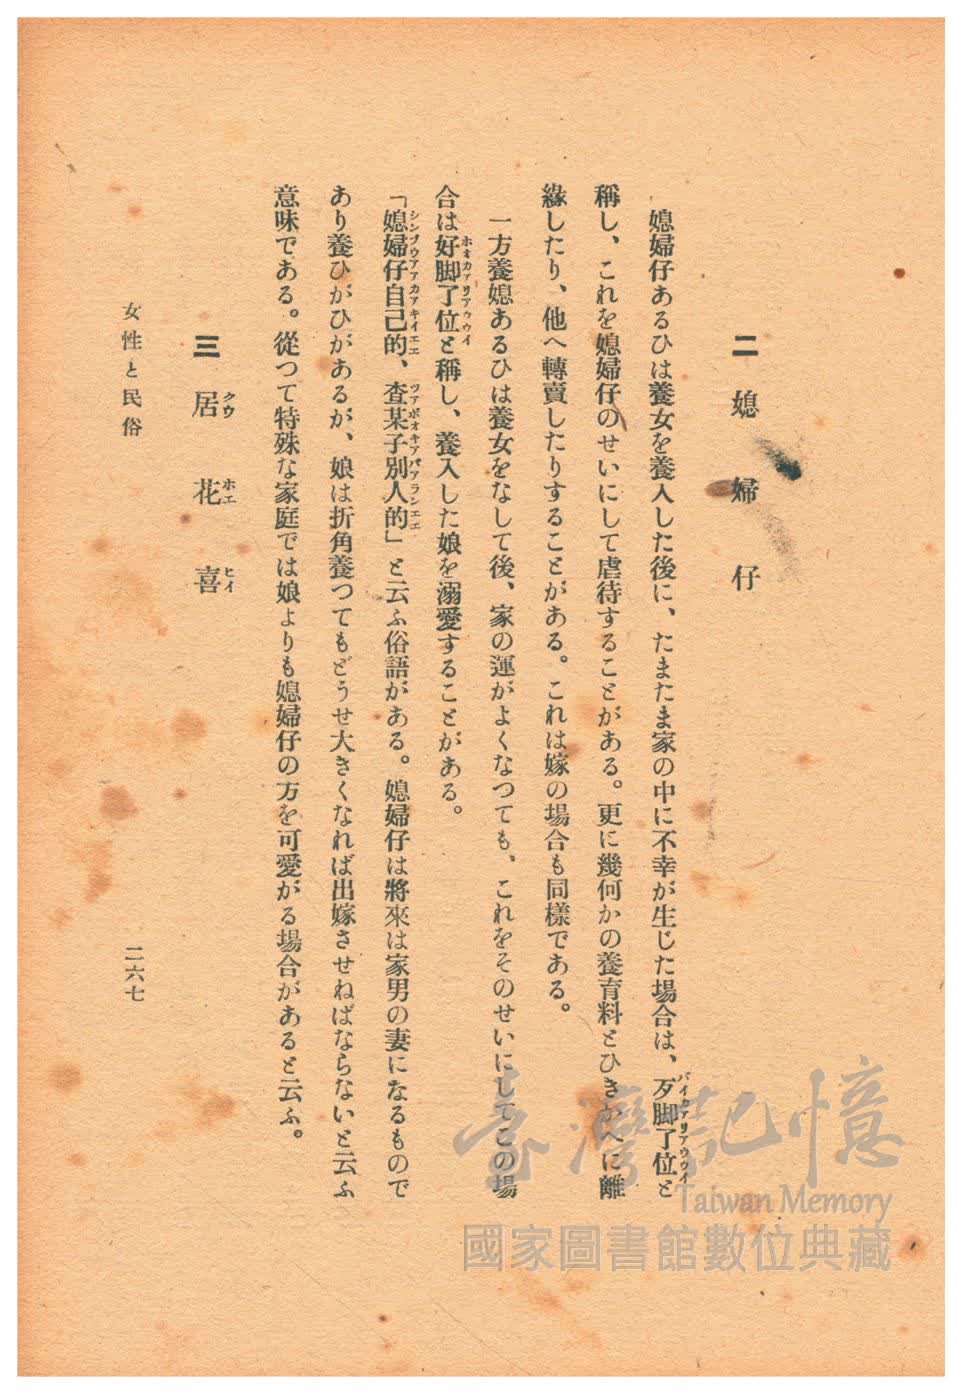 二　媳婦仔
媳婦仔あるひは養女を養入した後に、たまたま家の中に不幸が生じた場合は、歹脚了位と
バイカアリアウウイ
稱し、これを媳婦仔のせいにして虐待することがある。更に幾何かの養育料とひきかへに離
緣したり、他へ轉賣したりすることがある。これは嫁の場合も同樣である。
一方養媳あるひは養女をなして後、家の運がよくなつても、これをそのせいにしてこの場
合は好脚了位と稱し、養入した娘を溺愛することがある。
ホオカアリアウウイ
「媳婦仔自己的、查某子別人的」と云ふ俗語がある。媳婦仔は將來は家男の妻になるもので
シンブウアアカアキイエエ　ツアボオキアパアランエエ
あり養ひがひがあるが、娘は折角養つてもどうせ大きくなれば出嫁させねばならないと云ふ
意味である。從つて特殊な家庭では娘よりも媳婦仔の方を可愛がる場合があると云ふ。
三　居花喜
クウホエヒイ
女性と民俗
二六七
臺灣記憶
Taiwan Memory
國家圖書館數位典藏